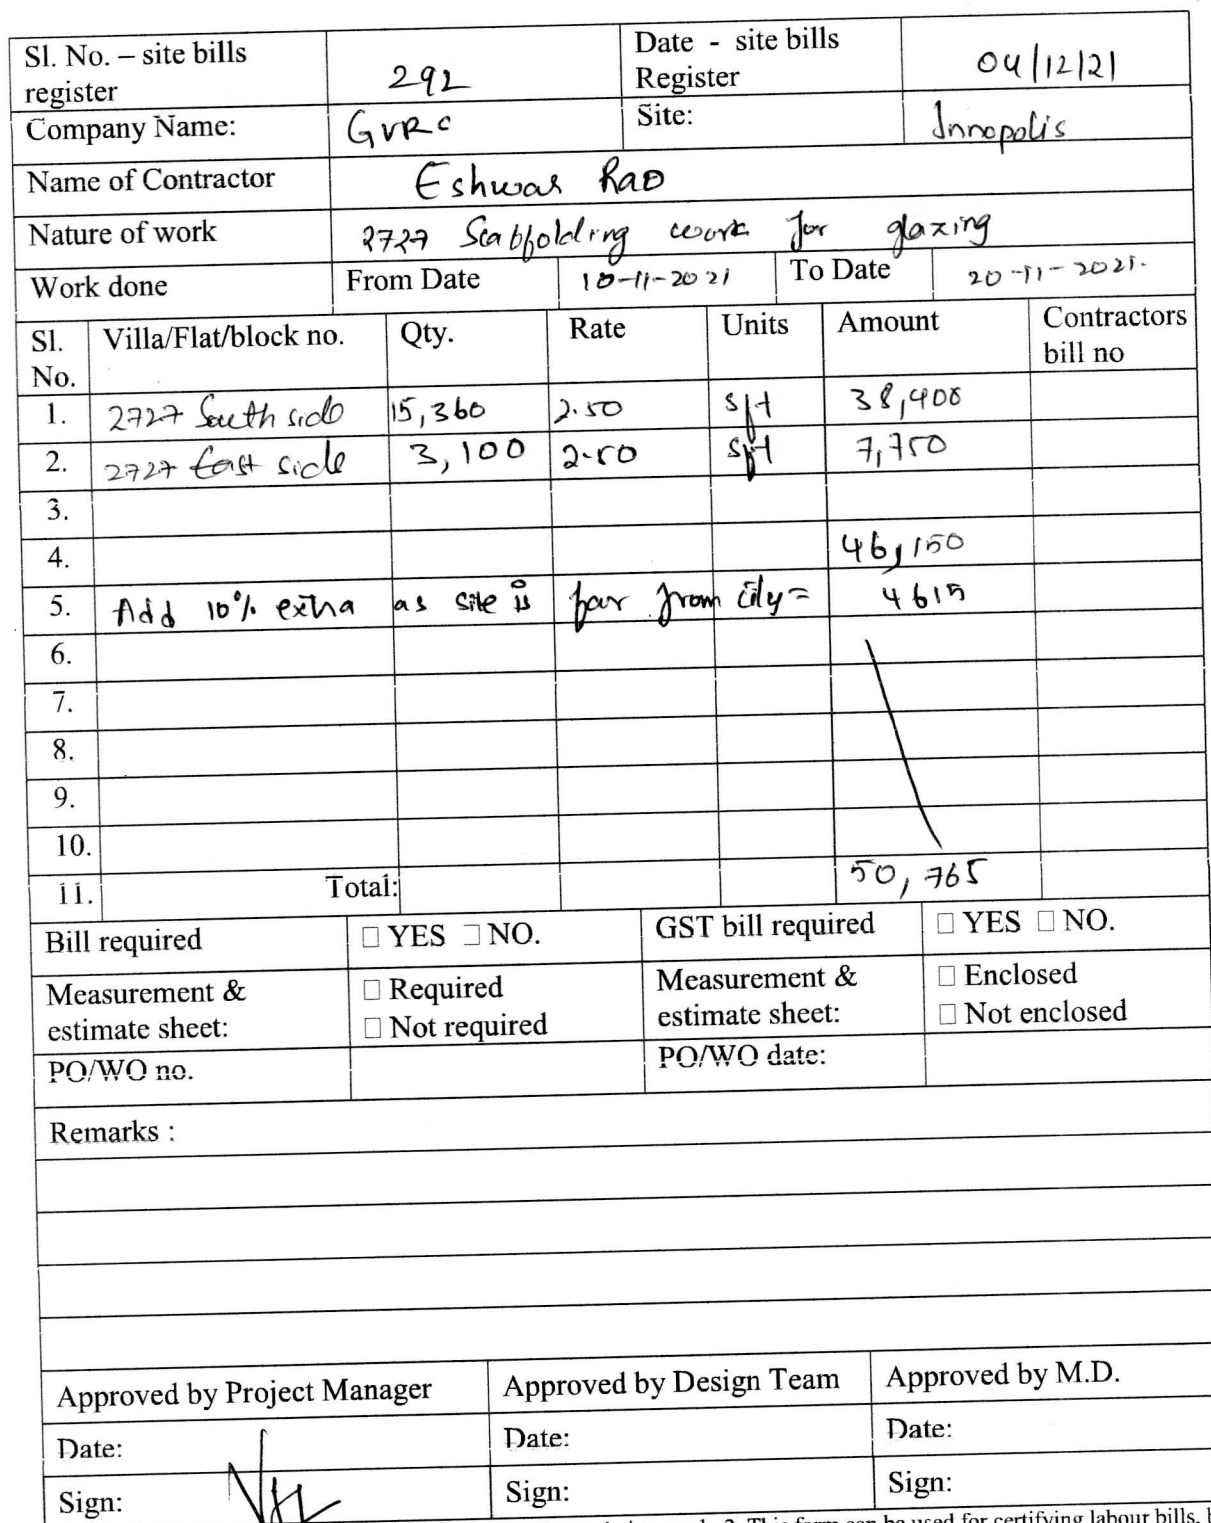 Sl. No. – site bills register 292 Date - site bills Register 04/12/21
Company Name: GVRC Site: Innopolis
Name of Contractor Eshwar Rao
Nature of work 2727 Scaffolding work for glazing
Work done From Date 10-11-2021 To Date 20-11-2021.
Sl. No. Villa/Flat/block no. Qty. Rate Units Amount Contractors bill no
1. 2727 South side 15,360 2.50 sft 38,400
2. 2727 East side 3,100 2.50 sft 7,750
3.
4. 46,150
5. Add 10% extra as site is far from city = 4615
6.
7.
8.
9.
10.
11. Total: 50,765
Bill required □ YES □ NO. GST bill required □ YES □ NO.
Measurement & estimate sheet: □ Required □ Not required Measurement & estimate sheet: □ Enclosed □ Not enclosed
PO/WO no. PO/WO date:
Remarks :
Approved by Project Manager Approved by Design Team Approved by M.D.
Date: Date: Date:
Sign: Sign: Sign:
2. This form can be used for certifying labour bills,